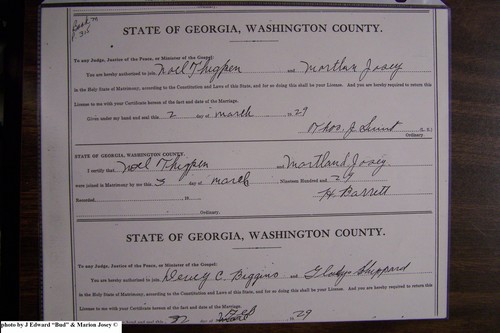 Book M
P 315
STATE OF GEORGIA, WASHINGTON COUNTY.
To any Judge, Justice of the Peace, or Minister of the Gospel:
You are hereby authorized to join, Noel Thigpen and Marthan Josey
in the Holy State of Matrimony, according to the Constitution and Laws of this State, and for so doing this shall be your License. And you are hereby required to return this
License to me with your Certificate hereon of the fact and date of the Marriage.
Given under my hand and seal this 2 day of march 1929
Thos. J. (L. S.)
Ordinary
STATE OF GEORGIA, WASHINGTON COUNTY.
I certify that Noel Thigpen and Martland Josey
were joined in Matrimony by me this 3 day of march Nineteen Hundred and 29
Recorded, 19 H. Barrett
Ordinary.
STATE OF GEORGIA, WASHINGTON COUNTY.
To any Judge, Justice of the Peace, or Minister of the Gospel:
You are hereby authorized to join, Dewey C. Biggins and Gladys Sheppard
in the Holy State of Matrimony, according to the Constitution and Laws of this State, and for so doing this shall be your License. And you are hereby required to return this
License to me with your Certificate hereon of the fact and date of the Marriage.
Given under my hand and seal this day of Feb 29
photo by J Edward "Bud" & Marion Josey ©